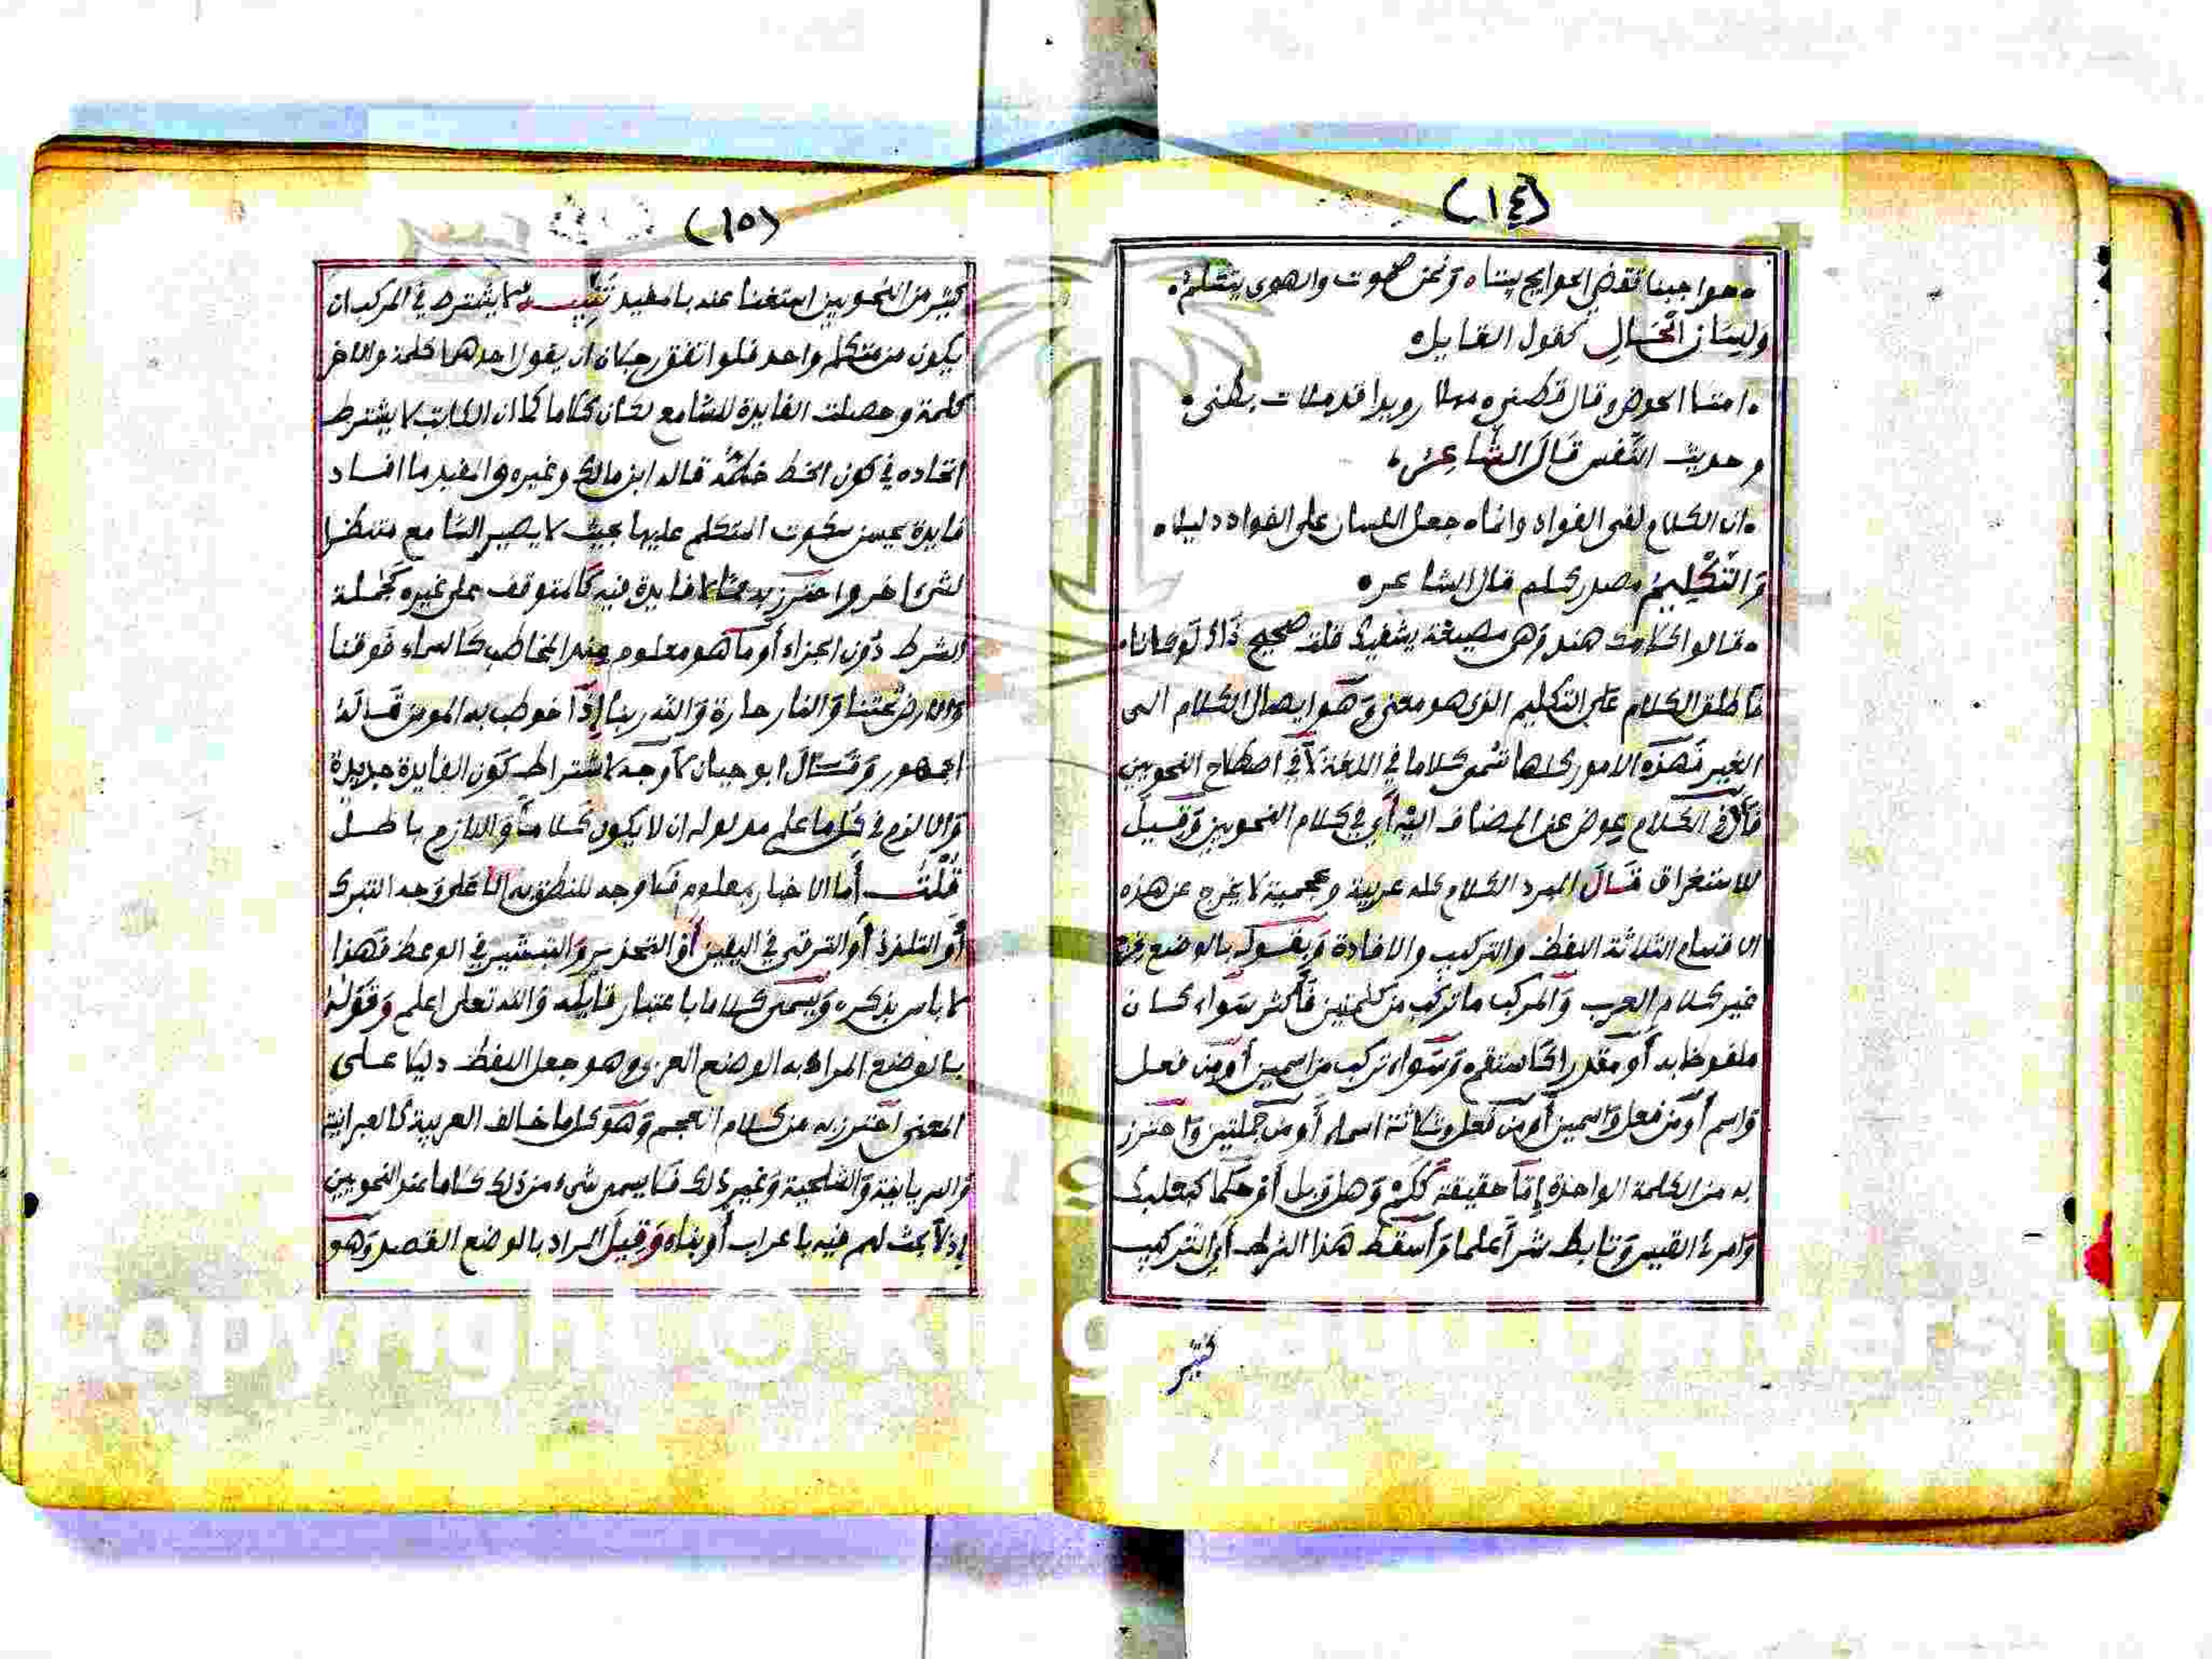 (١٤)
حواجبنا تقضي الحوايج بيننا ونحن صموت والهوى يتكلم
وَلِسَان الْحَالِ كقول القايل
امتلا الحوض وقال قطني مهلا رويدا قد ملات بطني
وحديث النَّفس قَالَ الشَّاعِرُ
ان الكلام لفي الفواد وانما جعل اللسان على الفواد دليلا
وَالتَّكْلِيمُ مصدر كلم قال الشاعر
قالوا كلامك هند وهي مصيغة يشفيك قلت صحيح ذاك لو كانا
فاطلق الكلام على التكليم الذي هو معنى وهو ايصال الكلام الى
الغير فهذه الامور كلها تسمى كلاما في اللغة لا في اصطلاح النحويين
فأل في الكلام عوض عن المضاف اليه أي في كلام النحويين وقيل
للاستغراق قال المبرد الكلام كله عربية وعجمية لا يخرج عن هذه
الاقسام الثلاثة اللفظ والتركيب والافادة وبقولك بالوضع
غير كلام العرب والمركب ما تركب من كلمتين فأكثر سواء كان
ملفوظا به أو مقدرا كاستقم وسواء تركب من اسمين أو من فعل
واسم أو من فعل واسمين أو من فعل وثلاثة اسماء أو من جملتين واحترز
به من الكلمة الواحدة إما حقيقة وهل وبل أو حكما كبعلبك
وامرئ القيس وتابط شرا علما وأسقط هذا الشرط أي التركيب
كثير
(١٥)
كثير من النحويين استغنا عنه بالمفيد تَنْبِيه لا يشترط في المركب ان
يكون من متكلم واحد فلو اتفق رجلان ان يقول احدهما كلمة والاخر
كلمة وحصلت الفايدة للسامع لكان كلاما كما ان الكاتب لا يشترط
اتحاده في كون الخط خطا قاله ابن مالك وغيره والمفيد ما افاد
فايدة يحسن سكوت المتكلم عليها بحيث لا يصير السامع منتظرا
لشيء اخر واحترز به مما لا فايدة فيه كالمتوقف على غيره كجملة
الشرط دون الجزاء أو ما هو معلوم عند المخاطب كالسماء فوقنا
والارض تحتنا والنار حارة والله ربنا إذا خوطب به المومن قاله
الجمهور وقال ابو حيان لا وجه لاشتراط كون الفايدة جديدة
والا لزم في كل ما علم مدلوله ان لا يكون كلاما واللازم باطل
قُلْتُ أما الاخبار بمعلوم فلا وجه للنطق به الا على وجه التبرك
أو التلذذ أو الترقي في اليقين أو التحذير والتبشير في الوعظ فهذا
لا باس بذكره ويسمى كلاما باعتبار قايله والله تعلى اعلم وقوله
بالوضع المراد به الوضع العربي وهو جعل اللفظ دليلا على
المعنى احترز به من كلام العجم وهو كل ما خالف العربية كالعبرانية
والسريانية والشلحية وغير ذلك فلا يسمى شيء من ذلك كلاما عند النحويين
إذ لا بحث لهم فيه باعراب أو بناء وقيل المراد بالوضع القصد وهو